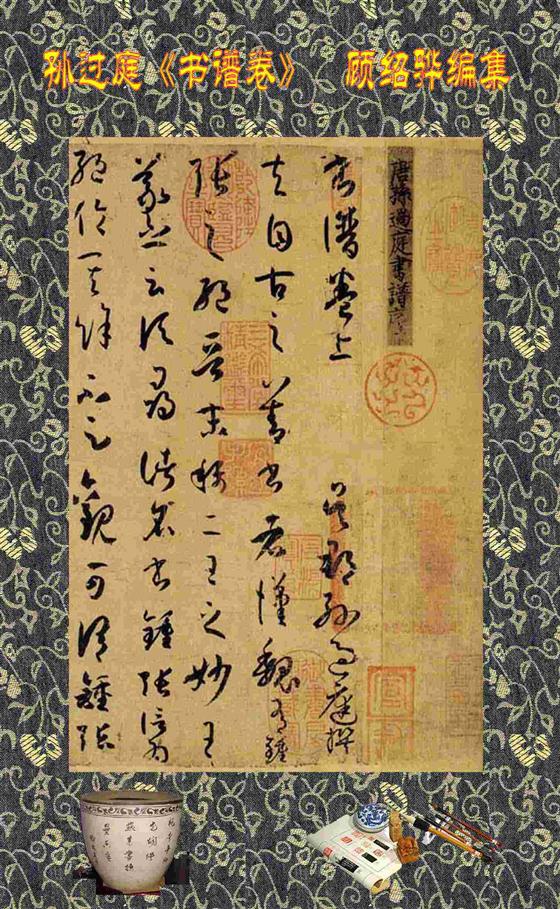 孙过庭《书谱卷》 顾绍骅编集
唐孫過庭書譜序
書譜卷上 吳郡孫過庭撰
夫自古之善書者漢魏有鍾
張之絕晉末稱二王之妙王
羲之云頃尋諸名書鍾張信為
絕倫其餘不足觀可謂鍾張